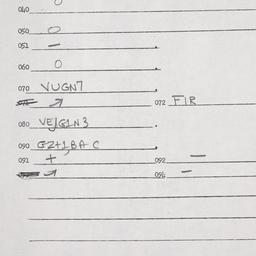 040 O
050 O
051 —
060 O
070 VUGN7
072 FIR
080 VE/G1N3
090 GZ+1,BA C
091 +
092 —
096 —